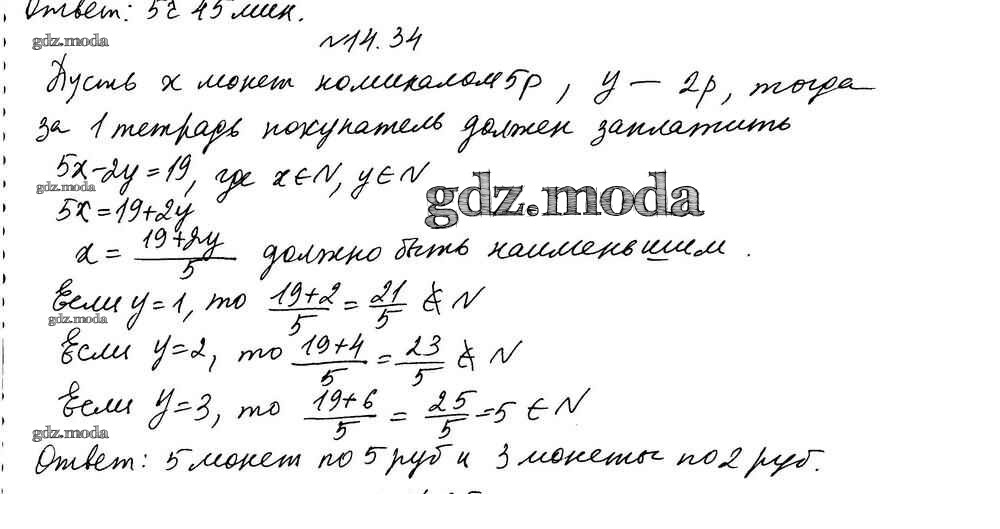 Ответ: 5 г 45 мин.
gdz.moda
№14.34
Пусть x монет номиналом 5р, y — 2р, тогда
за 1 тетрадь покупатель должен заплатить
5x-2y=19, где x∈N, y∈N
gdz.moda
gdz.moda
5x=19+2y
x = (19+2y)/5 должно быть наименьшим.
Если y=1, то (19+2)/5 = 21/5 ∉ N
gdz.moda
Если y=2, то (19+4)/5 = 23/5 ∉ N
Если y=3, то (19+6)/5 = 25/5 = 5 ∈ N
gdz.moda
Ответ: 5 монет по 5 руб и 3 монеты по 2 руб.